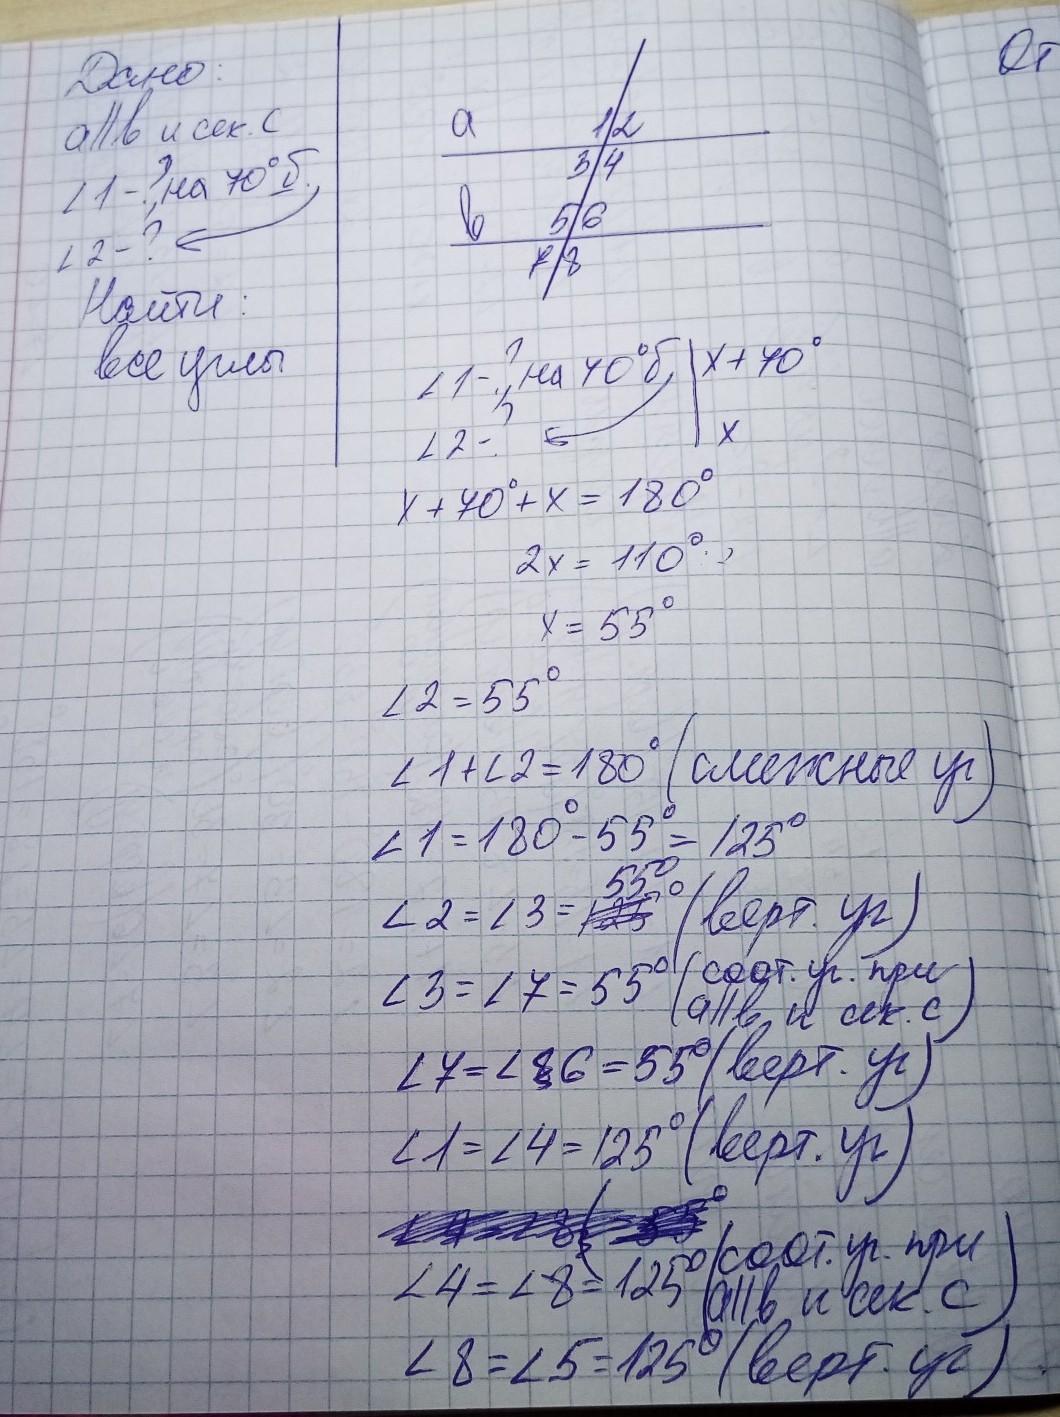 Дано:
a||b и сек. c
∠1 - ?, на 70° б.
∠2 - ?
Найти:
все углы
a
1 2
3 4
b
5 6
7 8
∠1 - ?, на 70° б, | x + 70°
∠2 - ? | x
x + 70° + x = 180°
2x = 110°
x = 55°
∠2 = 55°
∠1 + ∠2 = 180° (смежные уг)
∠1 = 180° - 55° = 125°
∠2 = ∠3 = 55° (верт. уг)
∠3 = ∠7 = 55° (соот. уг. при
a||b и сек. c)
∠7 = ∠6 = 55° (верт. уг)
∠1 = ∠4 = 125° (верт. уг)
∠4 = ∠8 = 125° (соот. уг. при
a||b и сек. c)
∠8 = ∠5 = 125° (верт. уг)
От